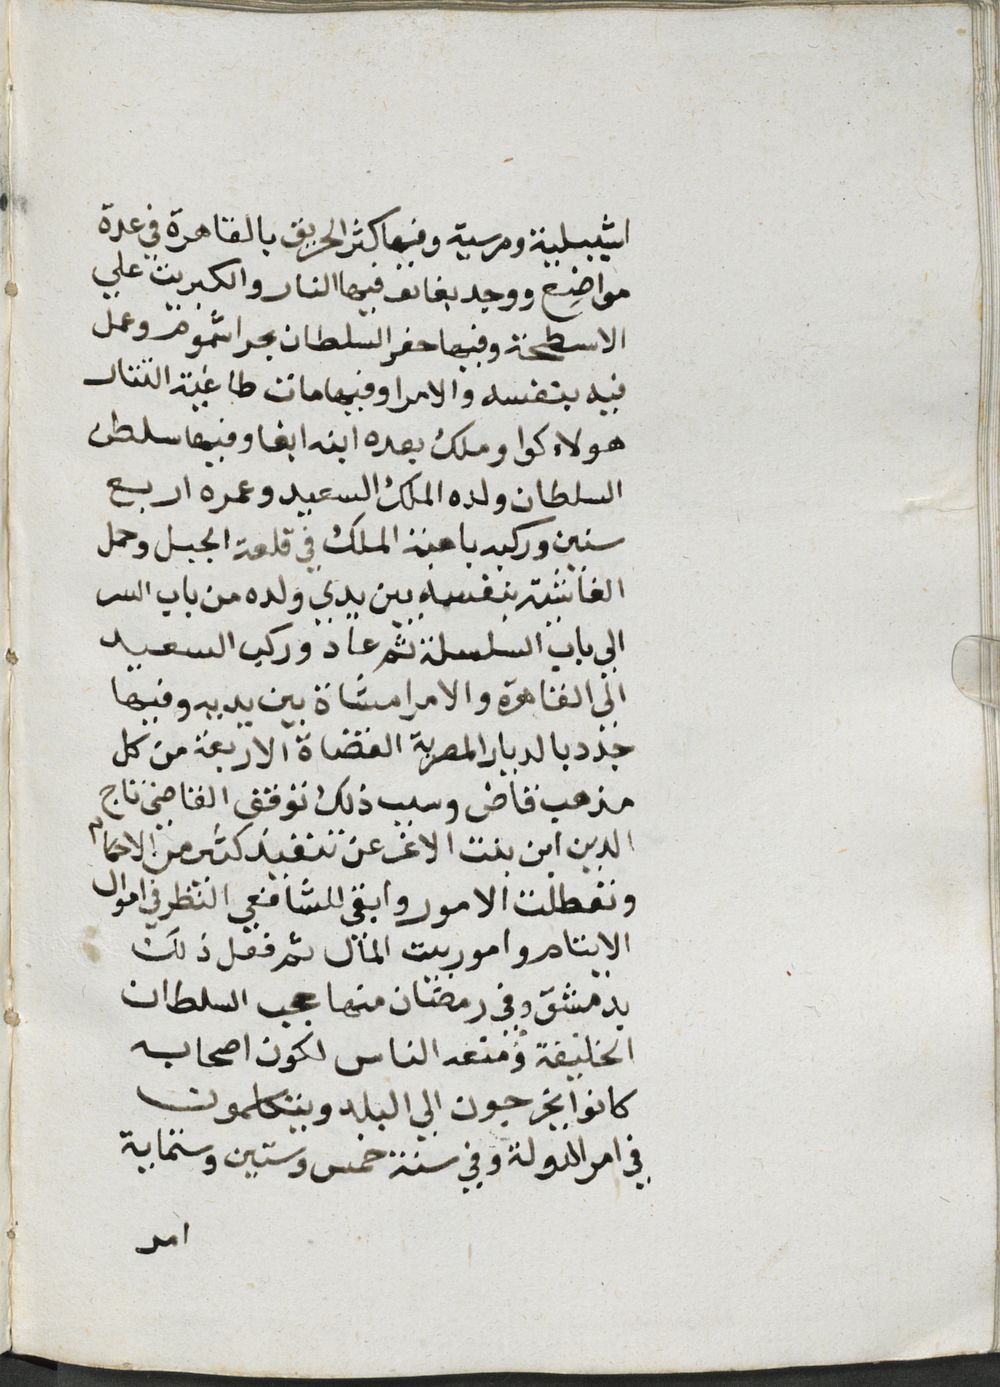 اشبيلية ومرسية وفيها كثر الحريق بالقاهرة في عدة
مواضع ووجد بغائف فيها النار والكبريت علي
الاسطحة وفيها حفر السلطان بحر اشموم وعمل
فيه بنفسه والامرا وفيها مات طاغية التتار
هولاءكوا وملك بعده ابنه ابغا وفيها سلطن
السلطان ولده الملك السعيد وعمره اربع
سنين وركبه باهبة الملك في قلعة الجبل وحمل
الغاشية بنفسه بين يدي ولده من باب السر
الي باب السلسلة ثم عاد وركب السعيد
الي القاهرة والامرا مشاة بين يديه وفيها
جدد بالديار المصرية القضاة الاربعة من كل
مذهب قاض وسبب ذلك توقف القاضي تاج
الدين ابن بنت الاعز عن تنفيذ كثير من الاحكام
وتعطلت الامور وابقي للشافعي النظر في اموال
الايتام وامور بيت المال ثم فعل ذلك
بدمشق وفي رمضان منها حجب السلطان
الخليفة ومنعه الناس لكون اصحابه
كانوا يخرجون الي البلد ويتكلمون
في امر الدولة وفي سنة خمس وستين وستماية
امر